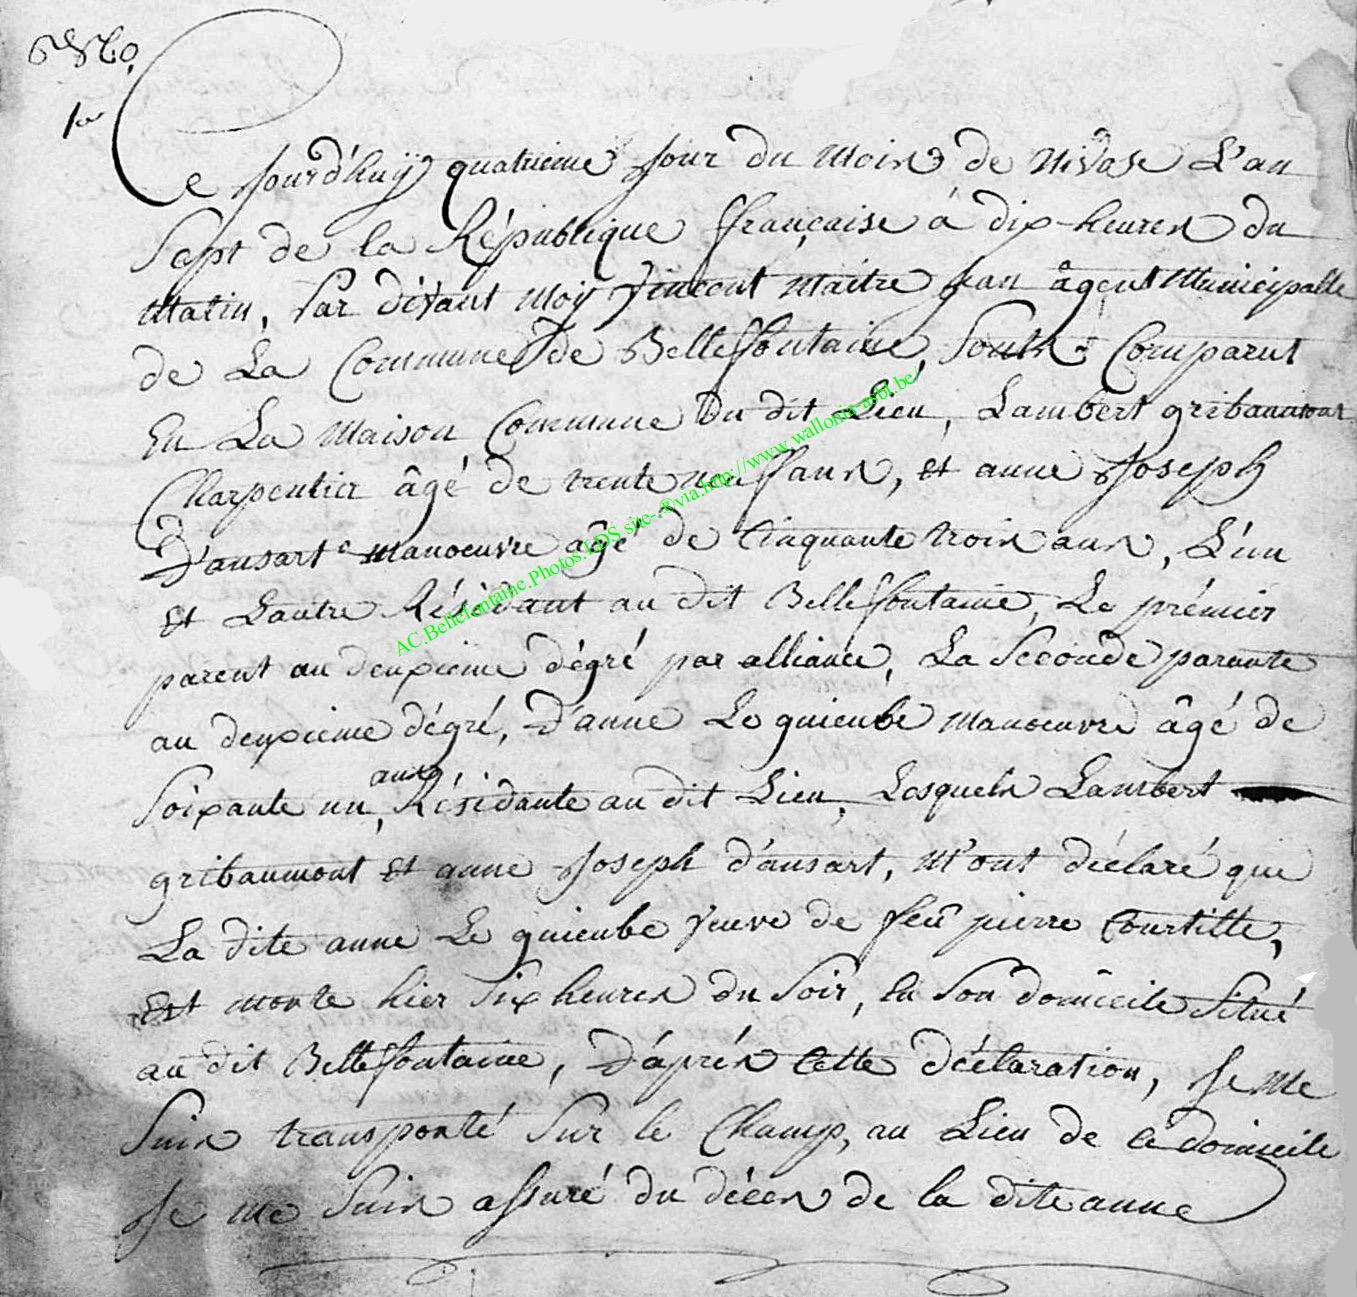 1er
Ce jourd'huÿ quatrieme jour du mois de nivose L'an
Sept de la République française à dix heures du
Matin, Par dévant Moÿ Vincent Maitre jean âgent Municipalle
de La Commune de Bellefontaine, Sont Comparut
En La Maison Commune du dit Lieu, Lambert gribaumont
Charpentier âgé de trente neuf ans, et anne Joseph
D'ansart Manoeuvre âgé de Cinquante trois ans, L'un
Et Lautre Résidant au dit Bellefontaine, Le prémier
parent au deuxieme dégré par alliance, La Seconde parante
au deuxieme dégré, D'anne Le quieube Manoeuvre âgé de
Soixante un ans, Résidante au dit Lieu, Lesquels Lambert
gribaumont Et anne Joseph d'ansart, M'ont déclaré que
La dite anne Le quieube veuve de feu pierre Courtille,
Est morte hier Six heures du Soir, En Son domicile Situé
au dit Bellefontaine, D'aprés Cette déclaration, Je Me
Suis transporté Sur le Champ, au Lieu de Ce domicile
Je me Suis assuré du décés de la dite anne
AC.Bellefontaine.Photos.LDS.site-®via.http://www.wallonia-asbl.be/